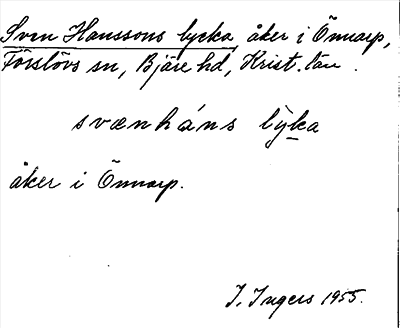 Sven Hanssons lycka åker i Önnarp,
Förslövs sn, Bjäre hd, Krist. län.
svænháns lỳka
åker i Önnarp.
I. Ingers 1955.